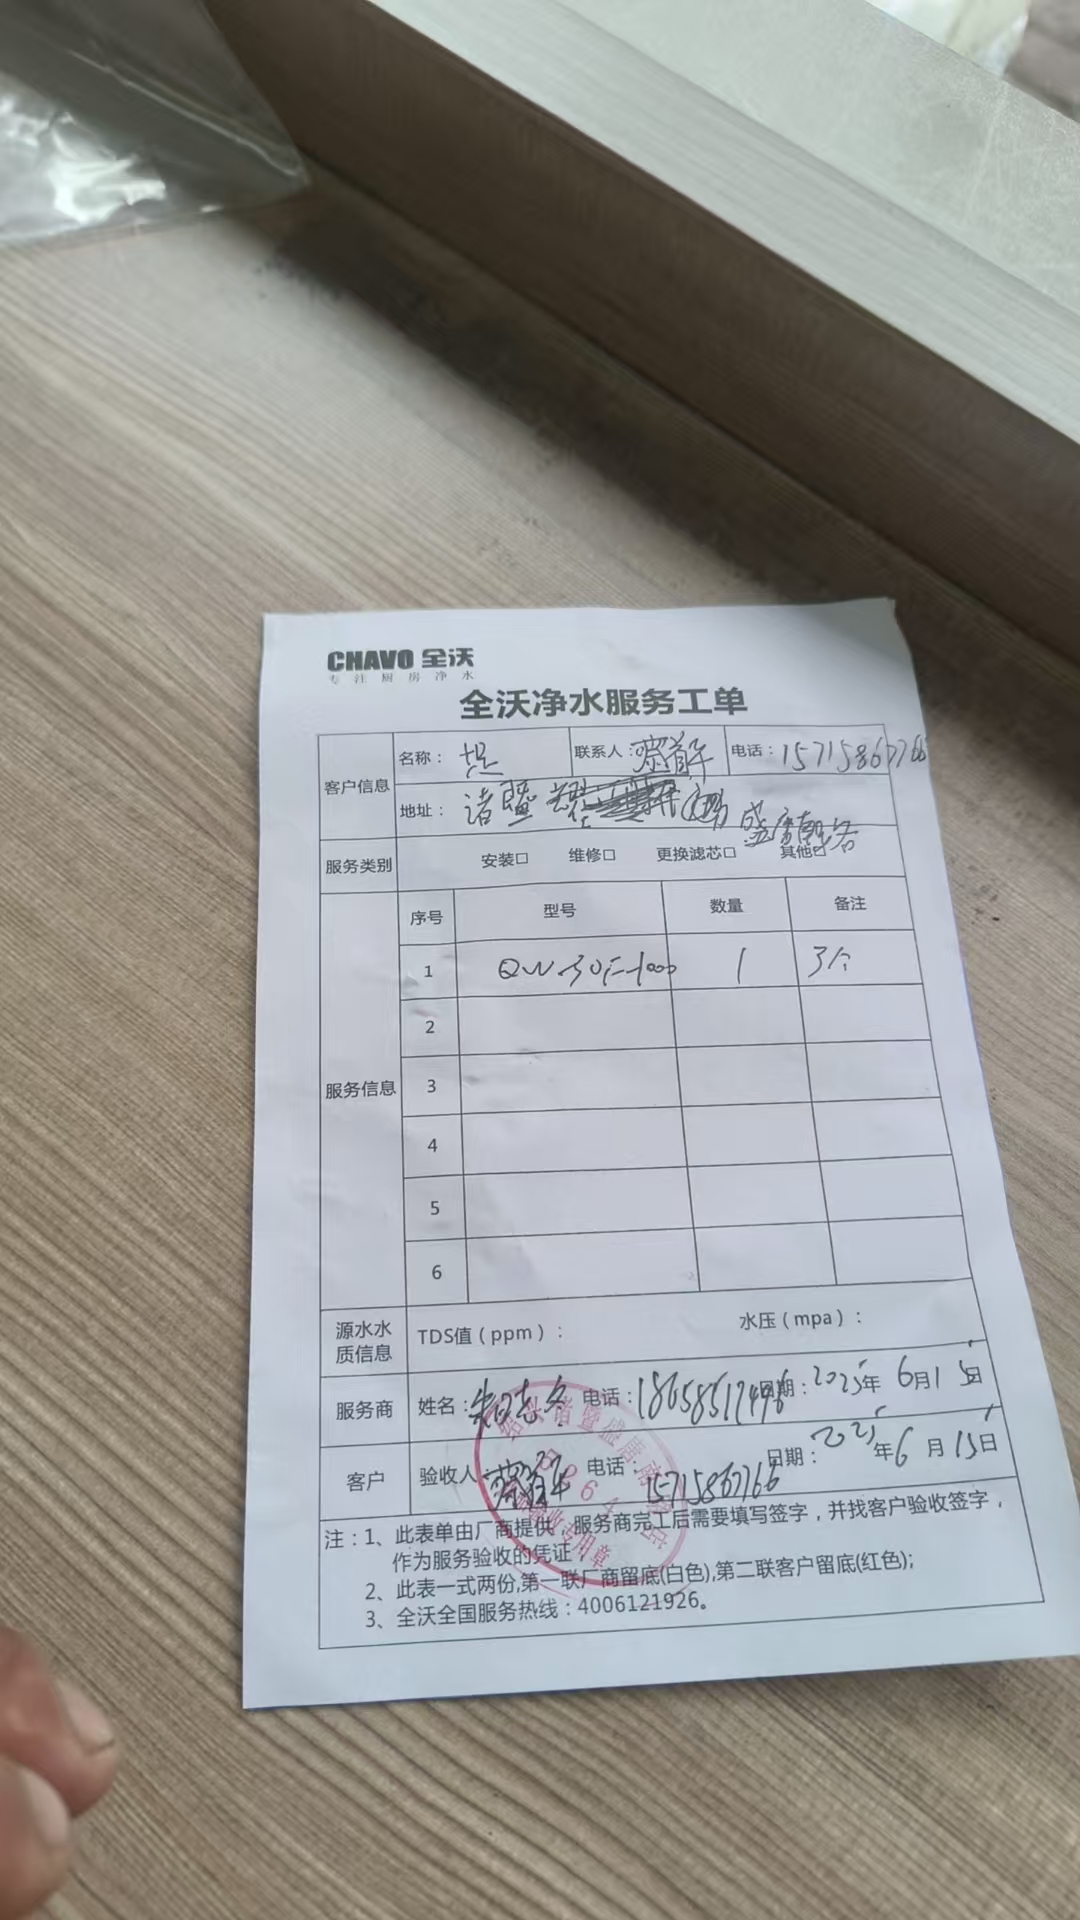 CHAVO 全沃
专注厨房净水
全沃净水服务工单
客户信息
名称：
联系人：
电话：15715867766
地址：诸暨
服务类别
安装□ 维修□ 更换滤芯□ 其他□
服务信息
序号 型号 数量 备注
1 1 3个
2
3
4
5
6
源水水质信息
TDS值（ppm）： 水压（mpa）：
服务商
姓名： 电话： 日期：2025年6月15日
客户
验收人： 电话：15715867766 日期：2025年6月15日
注：1、此表单由厂商提供，服务商完工后需要填写签字，并找客户验收签字，
作为服务验收的凭证
2、此表一式两份,第一联厂商留底(白色),第二联客户留底(红色);
3、全沃全国服务热线：4006121926。